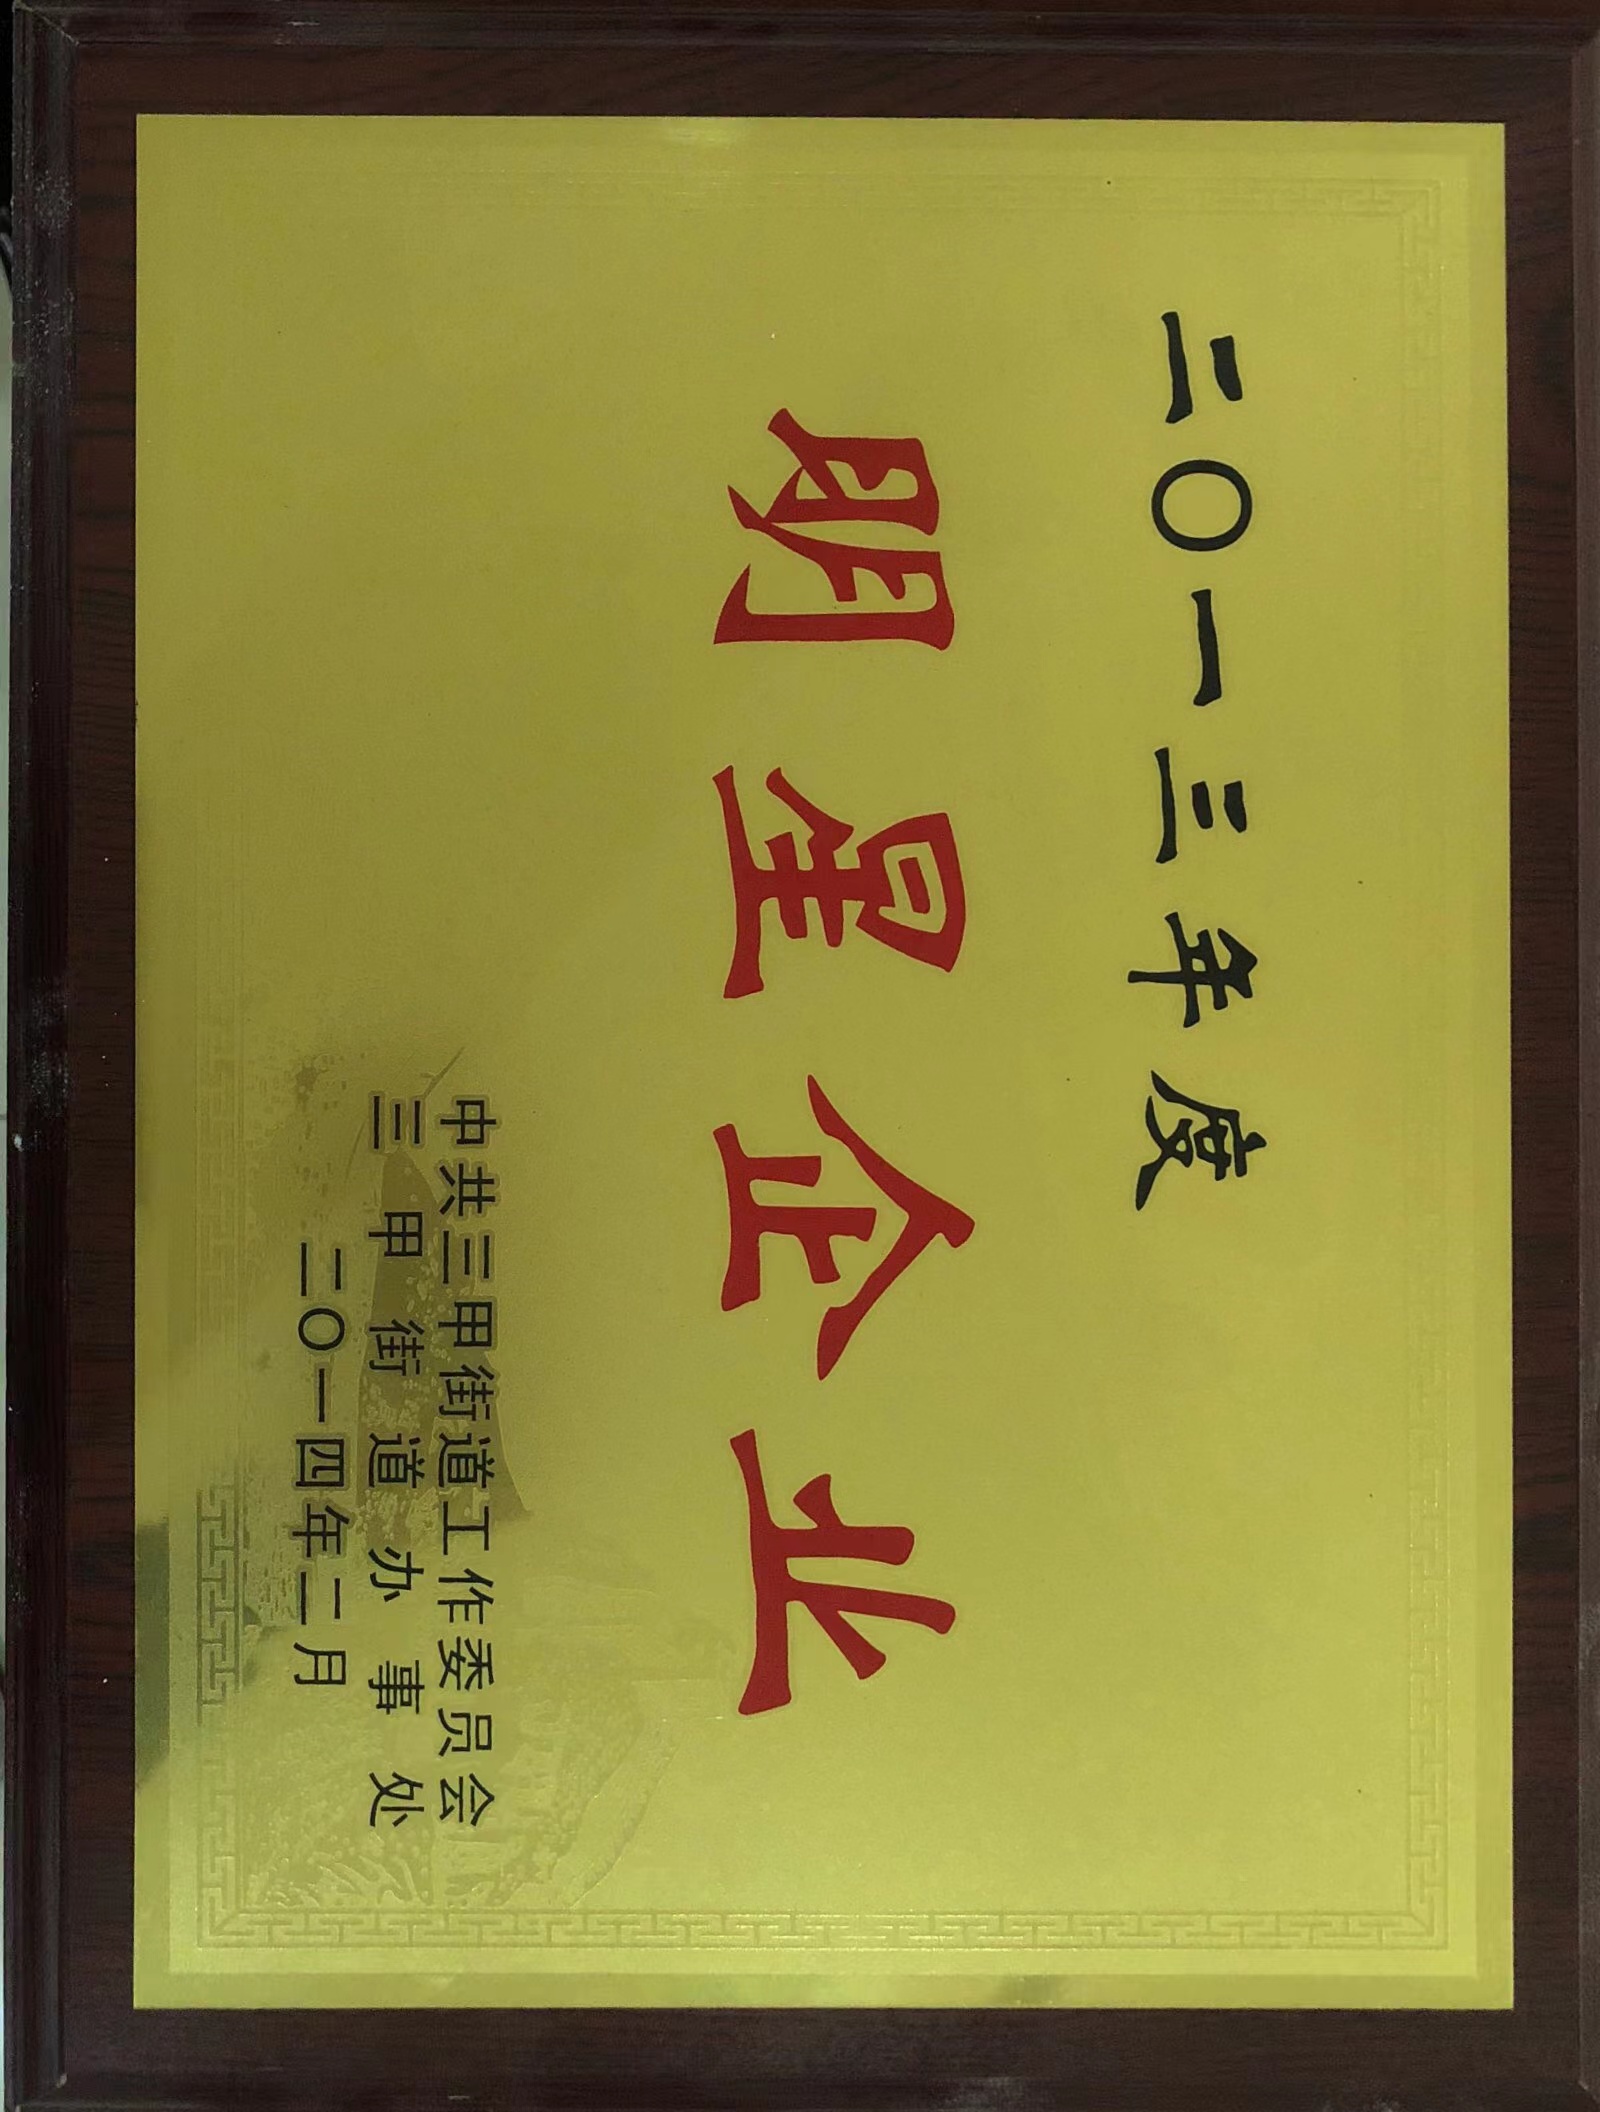 二〇一三年度
明星企业
中共三甲街道工作委员会
三甲街道办事处
二〇一四年二月